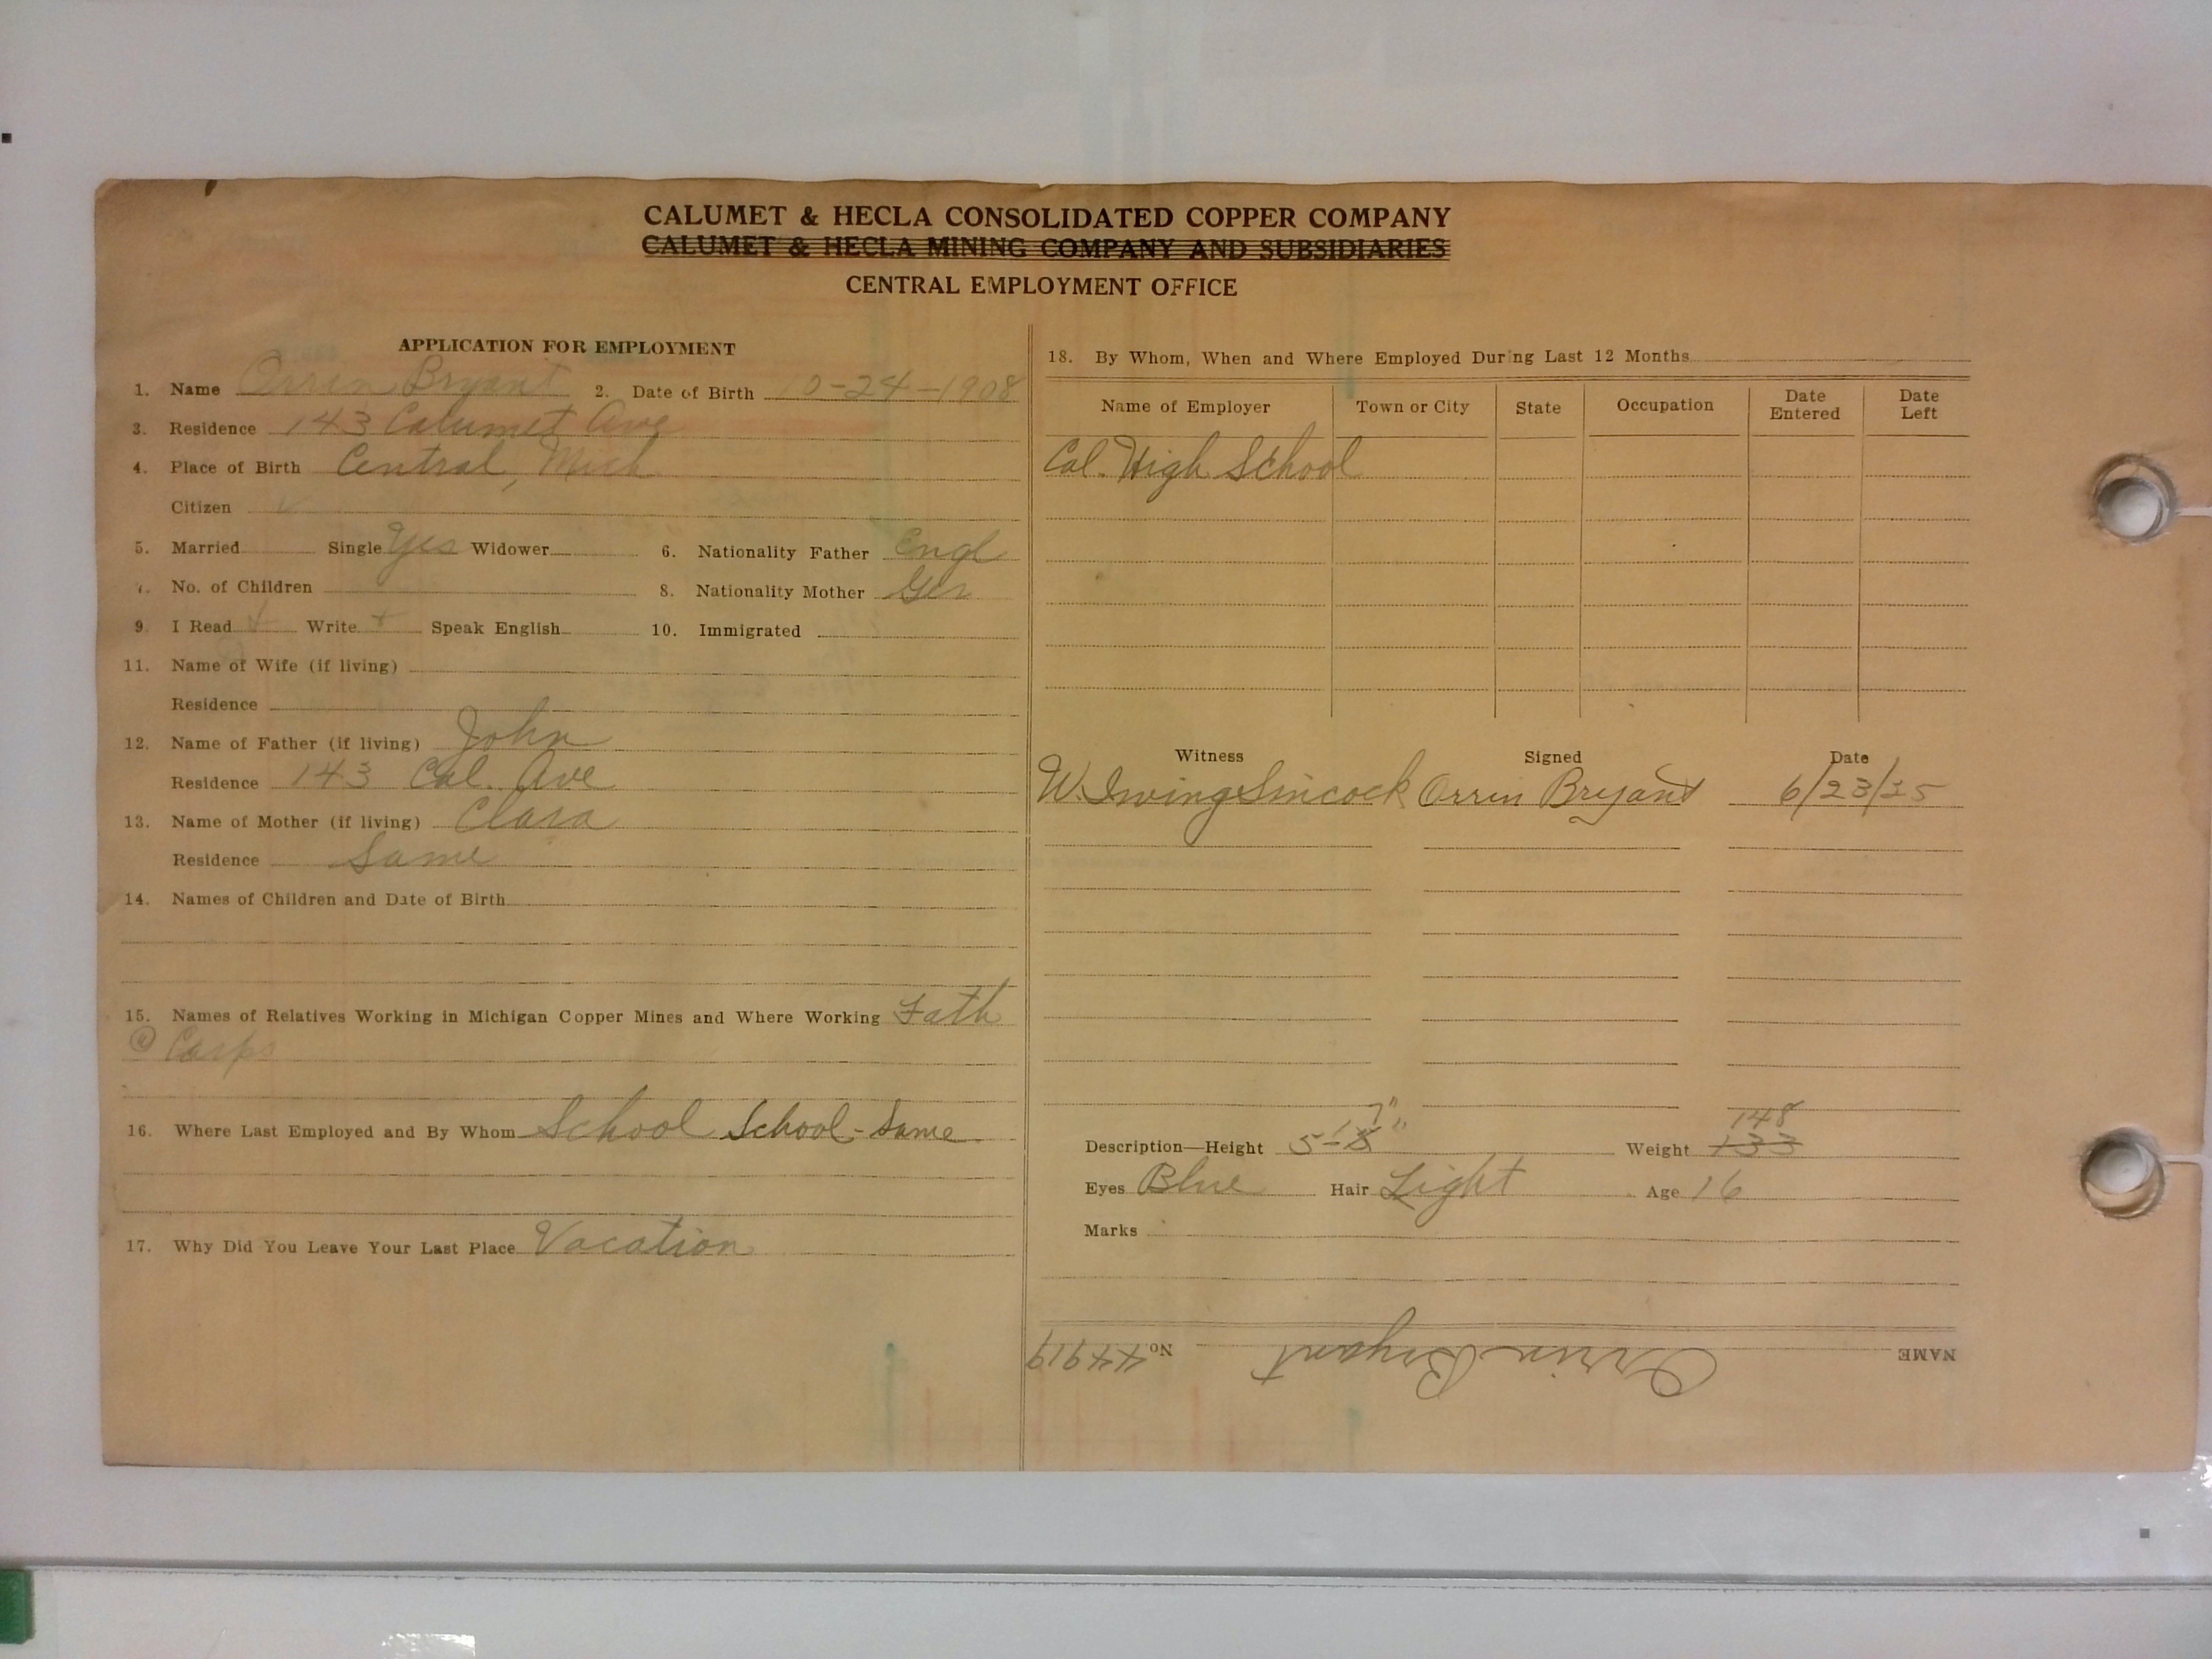 CALUMET & HECLA CONSOLIDATED COPPER COMPANY
CALUMET & HECLA MINING COMPANY AND SUBSIDIARIES
CENTRAL EMPLOYMENT OFFICE
APPLICATION FOR EMPLOYMENT
1. Name Orrin Bryant 2. Date of Birth 10-24-1908
3. Residence 143 Calumet Ave
4. Place of Birth Central, Mich
Citizen ✓
5. Married Single Yes Widower 6. Nationality Father Engl
7. No. of Children 8. Nationality Mother Ger
9. I Read + Write + Speak English 10. Immigrated
11. Name of Wife (if living)
Residence
12. Name of Father (if living) John
Residence 143 Cal. Ave
13. Name of Mother (if living) Clara
Residence Same
14. Names of Children and Date of Birth
15. Names of Relatives Working in Michigan Copper Mines and Where Working Fath
@ Carps
16. Where Last Employed and By Whom School School - Same
17. Why Did You Leave Your Last Place Vacation
18. By Whom, When and Where Employed During Last 12 Months
Name of Employer Town or City State Occupation Date Entered Date Left
Cal. High School
Witness Signed Date
W. Irving Sincock Orrin Bryant 6/23/25
7" 148
Description—Height 5-8" Weight 133
Eyes Blue Hair Light Age 16
Marks
NAME Orrin Bryant No. 44919